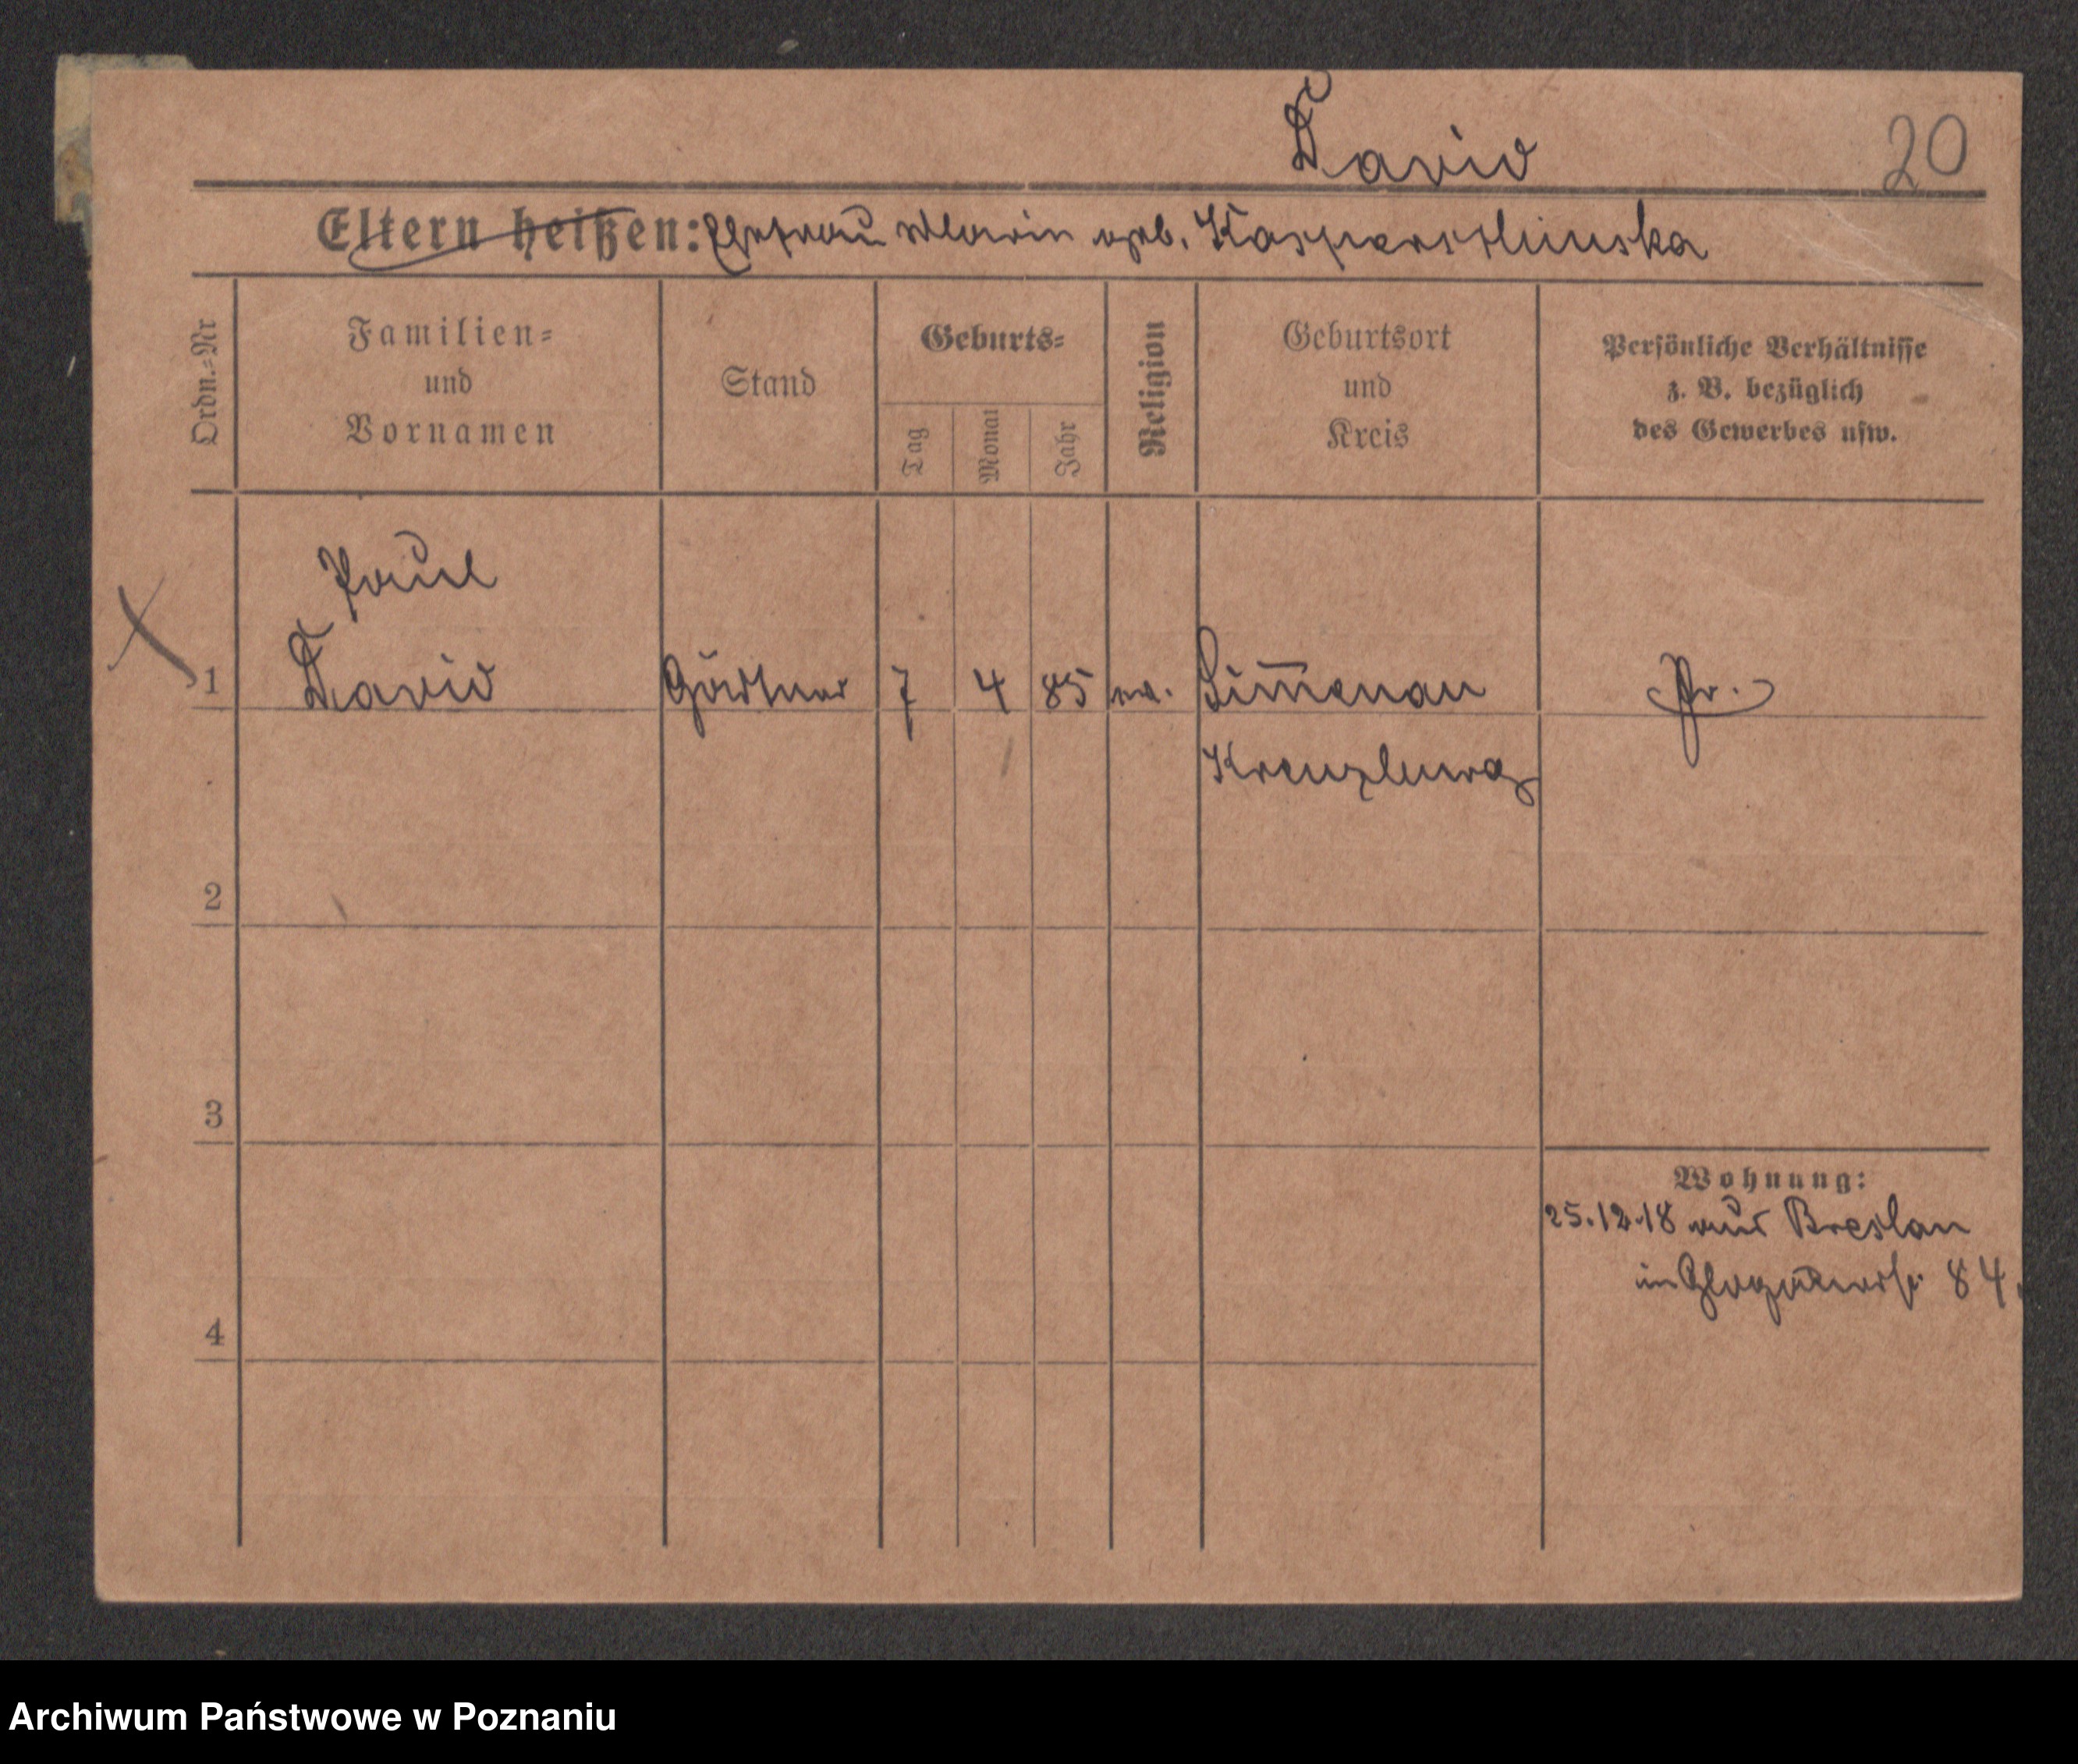 David
20
Eltern heißen: Ehefrau Marie geb.
Ordn.=Nr
Familien=
und
Vornamen
Stand
Geburts=
Tag
Monat
Jahr
Religion
Geburtsort
und
Kreis
Persönliche Verhältnisse
z. B. bezüglich
des Gewerbes usw.
Paul
1 David Gärtner 7 4 85 ev. Simmenau Pr.
Kreuzburg
2
3
4
Wohnung:
25.12.18 aus Breslau
in Glogauerstr. 84.
Archiwum Państwowe w Poznaniu